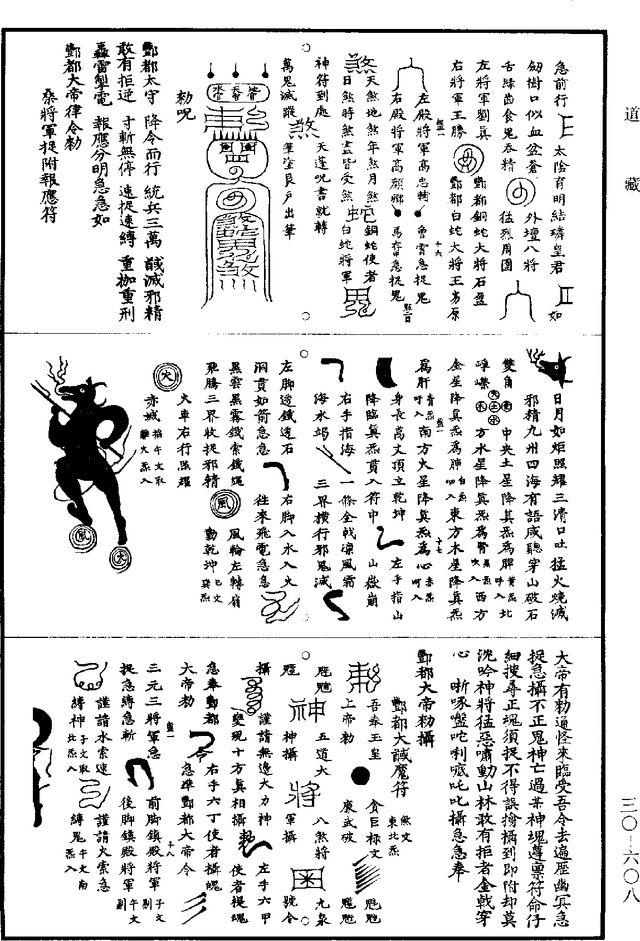 道藏
急前行 太陰育明結璘皇君 如
劒樹口似血盆耷 外壇八將
舌綠齒食鬼吞精 猛烈周圍
左將軍劉真 酆都銅蛇大將石盈
右將軍王勝 酆都白蛇大將王多原
左殿將軍高忠輔 會雷急捉鬼
右殿將軍高顯卿 馬在甲急捉鬼
天煞地煞年煞月煞 銅蛇使者
日煞時煞盡皆受煞 白蛇將軍
神符到處 天蓬呪書就轉
萬鬼滅蹤 筆塗艮戶出筆
勑呪
酆都太守 降令而行 統兵三萬 馘滅邪精
敢有拒逆 寸斬無停 速捉速縛 重枷重刑
轟雷掣電 報應分明急急如
酆都大帝律令勑
桑將軍捉附報應符
日月如炬照耀三清口吐猛火燒滅
邪精九州四海有語咸聽穿山破石
雙角 中央土星降真炁為脾 黃炁呼入 北
崢嶸 方水星降真炁為腎 黑炁吹入 西方
金星降真炁為肺 白炁呬入 東方木星降真炁
為肝 青炁呵入 南方火星降真炁為心 赤炁呵入
身長萬丈頂立乾坤 左手指山
降臨真炁貫入符中 山嶽崩
右手指海 一條金戟凛風霜
海水竭 三界橫行邪鬼滅
左脚透鐵透石 右脚入水入火
洞貫如箭急急 往來飛電急急
黑雲黑霧鐵索鐵繩 風輪左轉嶺
飛騰三界收捉邪精 動乾坤 巳文巽炁
火車右行照耀
赤城 掐午文取離火炁入
大帝有勑通怪來臨受吾令去遍歷幽冥急
捉急攝不正鬼神亡過某神魂遵稟符命仔
細搜尋正魂須捉不得誤擒攝到即附却莫
沈吟神將猛惡嘯動山林敢有拒者金戟穿
心 哳啄盤咜唎嚈吒叱攝急急奉
酆都大帝勑攝
酆都大馘魔符
吾奉玉皇 貪巨祿文 煞文東北炁
上帝勑 廉武破
五道大
神攝 八煞將
軍攝 九泉
號令
攝 謹請無邊大力神 左手六甲
變現十方真相攝 使者捉魂
急奉酆都 右手六丁使者攝魄
大帝勑 急準酆都大帝令
三元三將軍急 前脚鎮殿將軍 子文剔
捉急縛急斬 後脚鎮殿將軍 午文剔
謹請水索速 謹請火索急
縛神 子文取北炁入 縛鬼 午文南炁入
三〇—六〇八